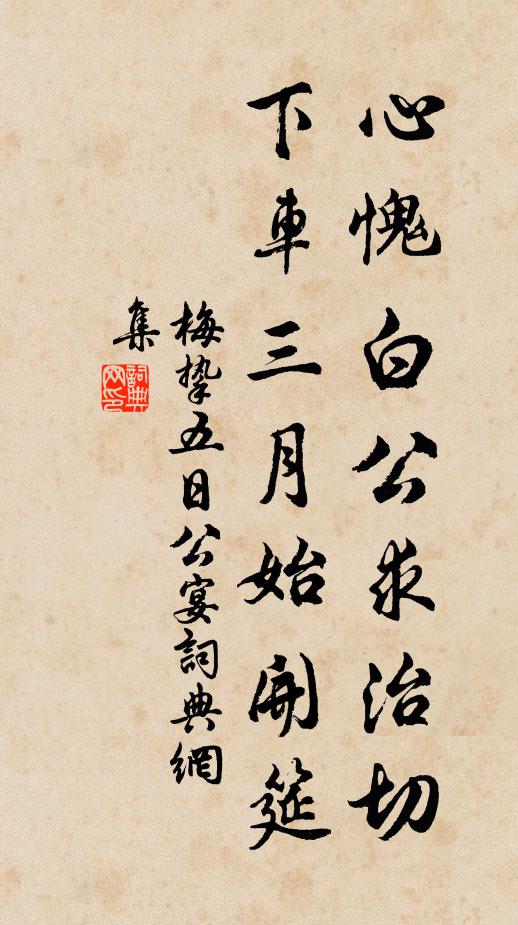 心愧白公求治切
下車三月始開筵
梅挚五日公宴詞典網
集
詞典
网印